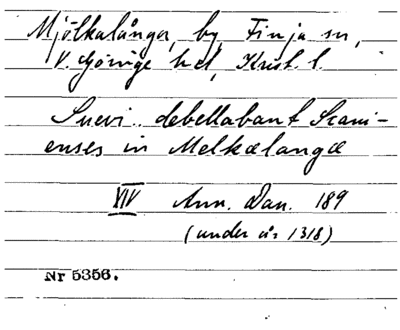 Mjölkalånga, by, Finja sn,
V. Göinge hd, Krist. l.
Suevi debellabant Scani-
enses in Melkælangæ
XIV Ann. Dan. 189
(under år 1318)
Nr 5356.